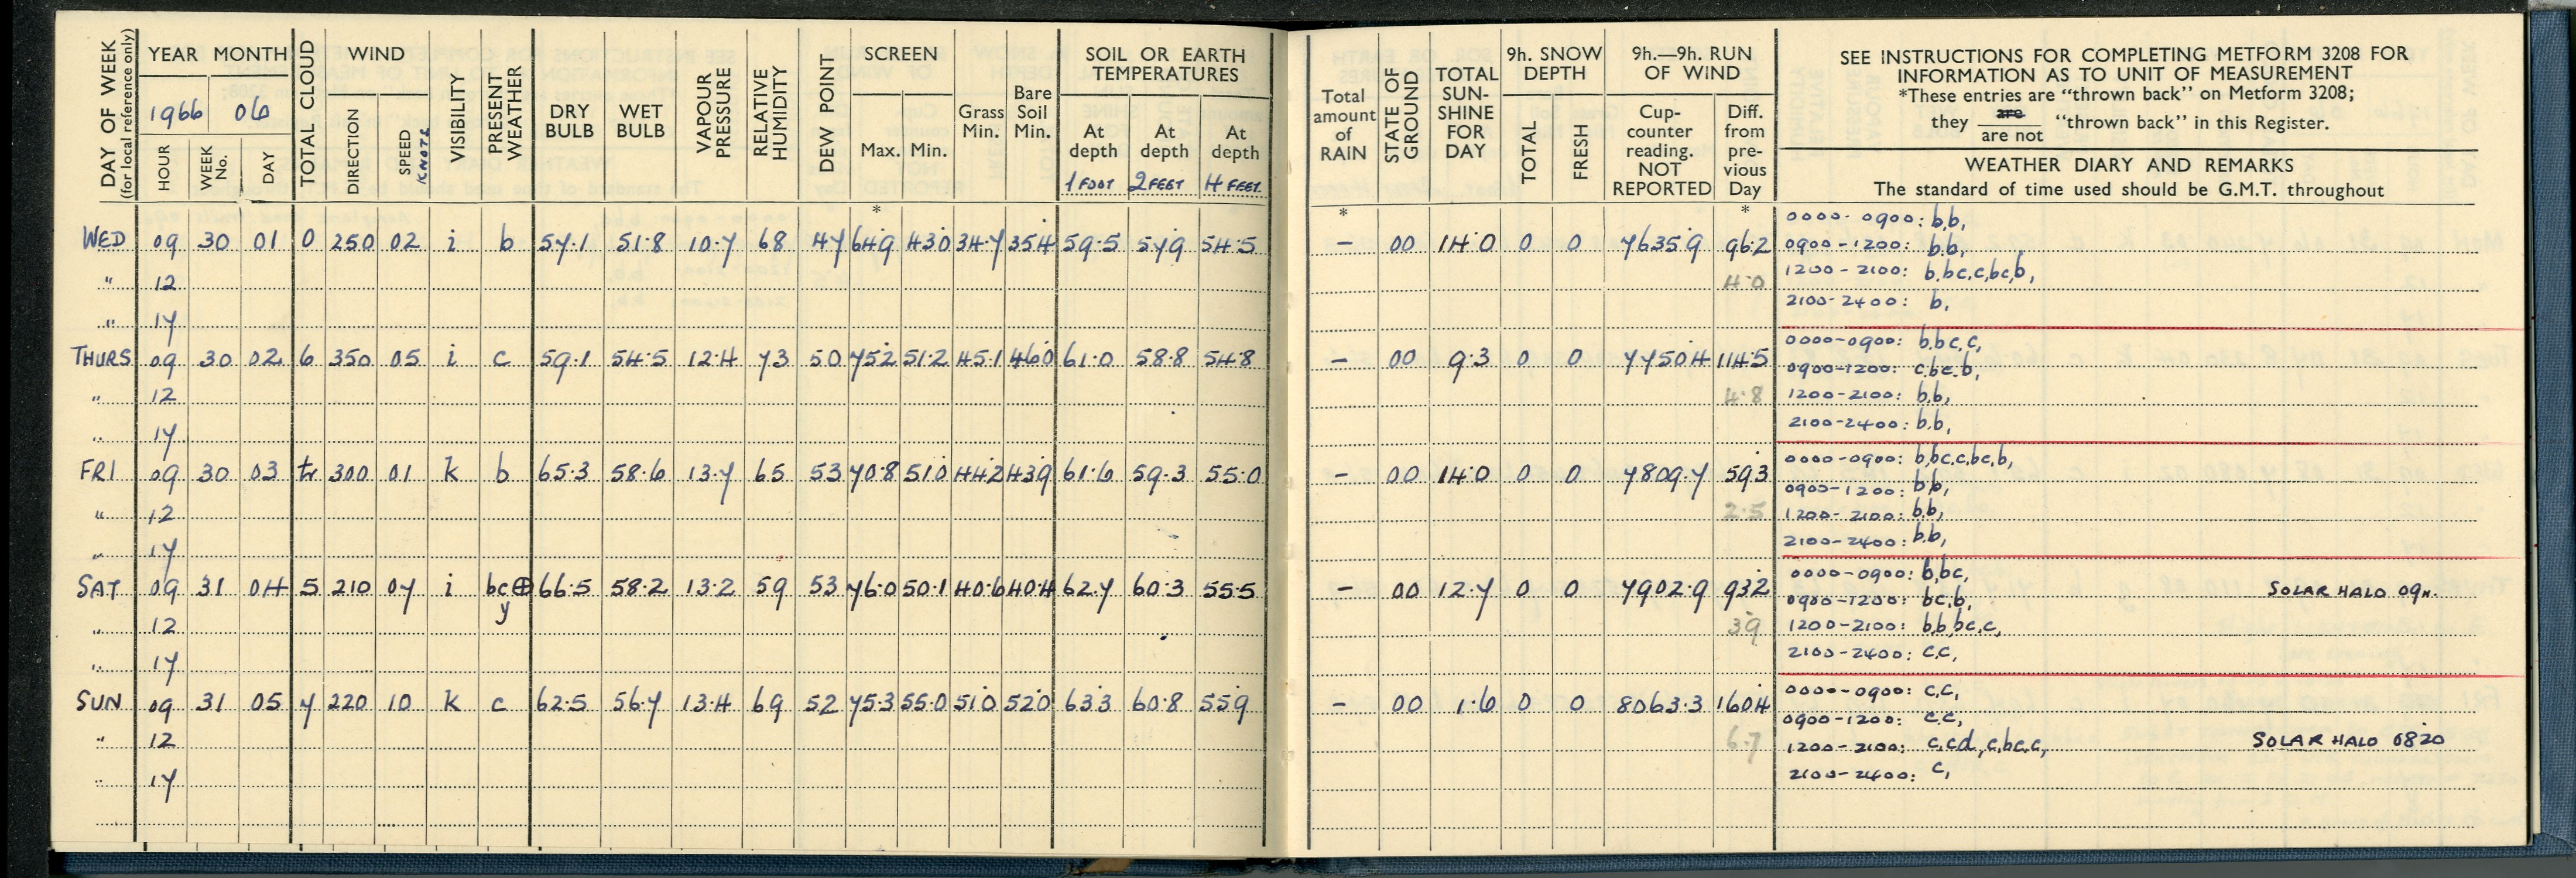 DAY OF WEEK
(for local reference only)
YEAR MONTH
1966 06
HOUR WEEK No. DAY
TOTAL CLOUD
WIND
DIRECTION SPEED KNOTS
VISIBILITY
PRESENT WEATHER
DRY BULB
WET BULB
VAPOUR PRESSURE
RELATIVE HUMIDITY
DEW POINT
SCREEN
Max. Min.
Grass Min.
Bare Soil Min.
SOIL OR EARTH TEMPERATURES
At depth 1 FOOT
At depth 2 FEET
At depth 4 FEET.
*
WED 09 30 01 0 250 02 i b 57.1 51.8 10.7 68 47 64.9 43.0 34.7 35.4 59.5 57.9 54.5
" 12
" 17
THURS 09 30 02 6 350 05 i c 59.1 54.5 12.4 73 50 75.2 51.2 45.1 46.0 61.0 58.8 54.8
" 12
" 17
FRI 09 30 03 tr 300 01 k b 65.3 58.6 13.7 65 53 70.8 51.0 44.2 43.9 61.6 59.3 55.0
" 12
" 17
SAT 09 31 04 5 210 07 i bc⊕ 66.5 58.2 13.2 59 53 76.0 50.1 40.6 40.4 62.7 60.3 55.5
y
" 12
" 17
SUN 09 31 05 7 220 10 k c 62.5 56.7 13.4 69 52 75.3 55.0 51.0 52.0 63.3 60.8 55.9
" 12
" 17
Total amount of RAIN
STATE OF GROUND
TOTAL SUN-SHINE FOR DAY
9h. SNOW DEPTH
TOTAL FRESH
9h.—9h. RUN OF WIND
Cup-counter reading. NOT REPORTED
Diff. from pre-vious Day
SEE INSTRUCTIONS FOR COMPLETING METFORM 3208 FOR
INFORMATION AS TO UNIT OF MEASUREMENT
*These entries are “thrown back” on Metform 3208;
they are / are not “thrown back” in this Register.
WEATHER DIARY AND REMARKS
The standard of time used should be G.M.T. throughout
* *
0000-0900: b,b,
– 00 14.0 0 0 7635.9 96.2 0900-1200: b,b,
4.0 1200-2100: b,bc,c,bc,b,
2100-2400: b,
0000-0900: b,bc,c,
– 00 9.3 0 0 7750.4 114.5 0900-1200: c,bc,b,
4.8 1200-2100: b,b,
2100-2400: b,b,
0000-0900: b,bc,c,bc,b,
– 00 14.0 0 0 7809.7 59.3 0900-1200: b,b,
2.5 1200-2100: b,b,
2100-2400: b,b,
0000-0900: b,bc,
– 00 12.7 0 0 7902.9 93.2 0900-1200: bc,b, SOLAR HALO 09H.
3.9 1200-2100: b,b,bc,c,
2100-2400: c,c,
0000-0900: c,c,
– 00 1.6 0 0 8063.3 160.4 0900-1200: c,c,
6.7 1200-2100: c,cd,c,bc,c, SOLAR HALO 0820
2100-2400: c,